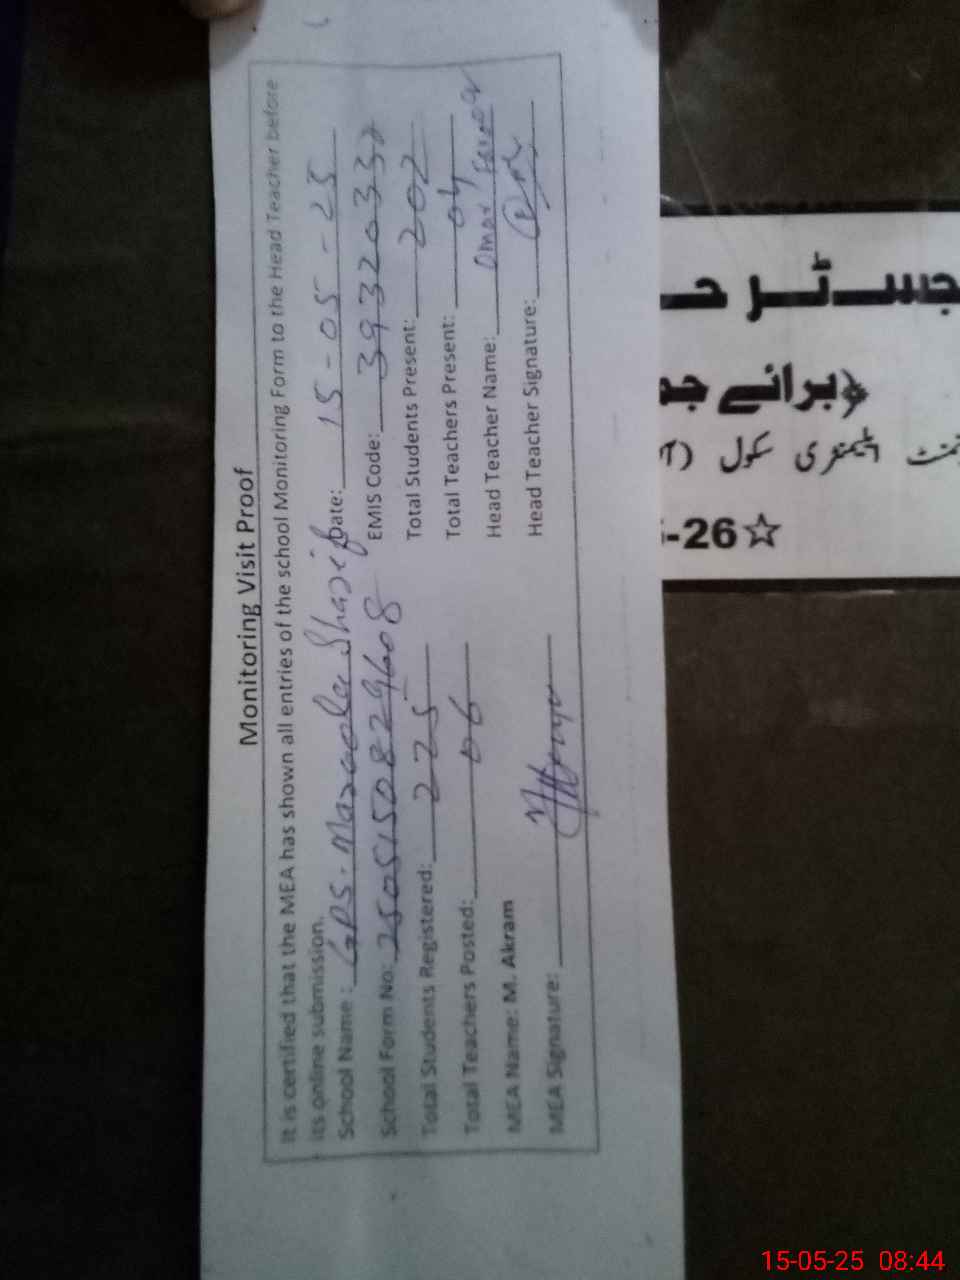 Monitoring Visit Proof
It is certified that the MEA has shown all entries of the school Monitoring Form to the Head Teacher before
its online submission.
School Name: GPS. Maroola Sharif Date: 15-05-25
School Form No: 2505150829608 EMIS Code: 39320332
Total Students Registered: 225 Total Students Present: 202
Total Teachers Posted: 06 Total Teachers Present: 04
MEA Name: M. Akram Head Teacher Name: Omar Farooq
MEA Signature: Head Teacher Signature:
برائے
سکول
-26☆
15-05-25 08:44